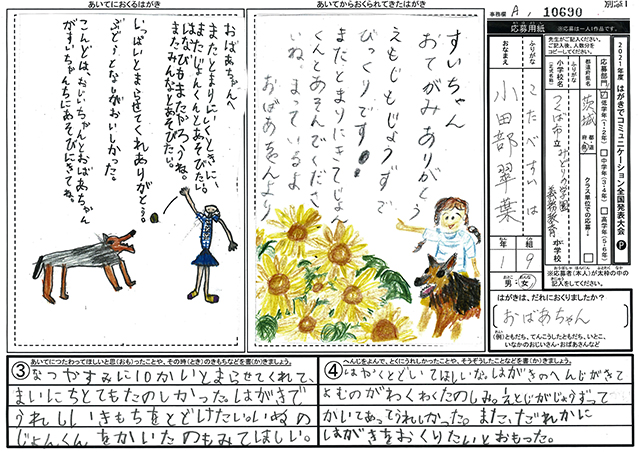 あいてにおくるはがき
おばあちゃんへ
またとまりにいくときに、
またじょんくんとあそびたい。
はなびもまたやろうね。
またみんなとあそびたい。
いっぱいとまらせてくれありがとう。
ぶどうとなしがおいしかった。
こんどは、おじいちゃんとおばあちゃん
がすいちゃんちにあそびにきてね。
あいてからおくられてきたはがき
すいちゃん
おてがみありがとう
えもじもじょうずで
びっくりです
またとまりにきてじょん
くんとあそんでくださ
いね。まっているよ
おばあちゃんより
事務欄 A, 10690
応募用紙
※応募は一人1作品です。
先生がご記入ください。
ご記入後、人数分を
コピーしてください。
2021年度 はがきでコミュニケーション全国発表大会 P
応募部門
低学年(1・2年)
中学年(3・4年)
高学年(5・6年)
都道府県名
茨城
都道府県
クラス単位での応募
ふりがな
小学校名
(正式名称)
つくば市立
みどりの学園
義務教育
小学校
ふりがな
おなまえ
こたべすいは
小田部翠葉
年
1
組
9
男・女
※応募者(本人)が太枠の中の
記入をしてください。
はがきは、だれにおくりましたか？
おばあちゃん
(例)ともだち、てんこうしたともだち、いとこ、
いなかのおじいさん・おばあさんなど
あいてにつたわってほしいと思(おも)ったことや、その時(とき)のきもちなどを書(か)きましょう。
③なつやすみに10かいとまらせてくれて、
まいにちとてもたのしかった。はがきで
うれしいきもちをとどけたい。いぬの
じょんくんをかいたのもみてほしい。
へんじをよんで、とくにうれしかったことや、そうぞうしたことなどを書(か)きましょう。
④はやくとどいてほしいな。はがきのへんじがきて
よむのがわくわくたのしみ。えとじがじょうずって
かいてあってうれしかった。また、だれかに
はがきをおくりたいとおもった。